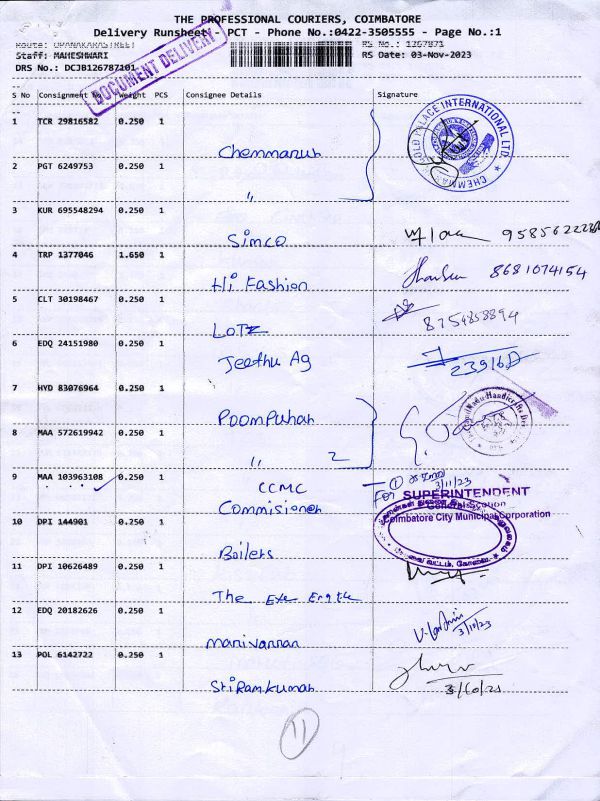 THE PROFESSIONAL COURIERS, COIMBATORE
Delivery Runsheet - PCT - Phone No.:0422-3505555 - Page No.:1
Route: OPANAKARASTREET RS No.: 1267871
Staff: MAHESHWARI RS Date: 03-Nov-2023
DRS No.: DCJB126787101
DOCUMENT DELIVERY
S No Consignment Weight PCS Consignee Details Signature
1 TCR 29816582 0.250 1
Chemmanur
CHEMMA GOLD PALACE INTERNATIONAL LTD.
2 PGT 6249753 0.250 1
"
3 KUR 695548294 0.250 1
Simco
4 TRP 1377046 1.650 1
Hi Fashion 8681074154
5 CLT 30198467 0.250 1
LOTZ 8754858894
6 EDQ 24151980 0.250 1
Jeethu Ag
7 HYD 83076964 0.250 1
Poompuhar
8 MAA 572619942 0.250 1
" 2
9 MAA 103963108 0.250 1
CCMC 3/11/23
Commisioner FOR SUPERINTENDENT
Coimbatore City Municipal Corporation
10 DPI 144901 0.250 1
Boilers
11 DPI 10626489 0.250 1
The Eye
12 EDQ 20182626 0.250 1
manivannan 3/10/23
13 POL 6142722 0.250 1
Sriramkumar 3/10/23
11